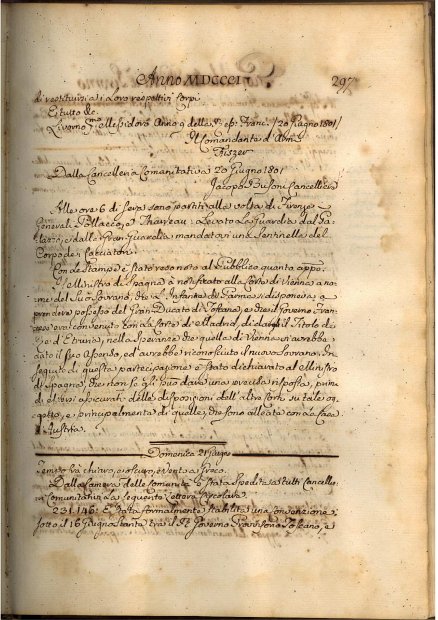 Anno MDCCCI
297
di restituirsi ai Loro respettivi Corpi
Livorno Anno 9 della Franc. /20 Giugno 1801/
Il Comandante d'Armi
Dalla Cancelleria Comunitativa 20 Giugno 1801
Jacopo Cancelliere
Alle ore 6 di sera sono partiti alla volta di Firenze
Generali Pollacco, e levato la Guardia dal
e dalla Gran Guardia mandatavi una Sentinella del
Corpo de Cacciatori.
Con le Stampe è stato reso noto al Pubblico quanto appo:
Ministro di Spagna à notificato alla Corte di Vienna a no
me del Suo Sovrano, che L'Infante di Parma si disponeva a
prendere possesso del Gran Ducato di Toscana, e che il Governo Fran
cese era convenuto con la Corte di Madrid, di dargli il Titolo di
Re d'Etruria, nella Speranza che quella di Vienna vi avrebbe
dato il suo assenso, ed avrebbe riconosciuto il nuovo Sovrano. In
seguito di questa partecipazione è stato dichiarato al Ministro
di Spagna, che non se gli può dare una precisa risposta, prima
di essersi assicurati delle disposizioni dell'altre Corti su tale og
getto, e principalmente di quelle, che sono alleate con la Casa
d'Austria.
Domenica 21 Giugno
Tempo chiaro, e oscuro, e vento a Greco.
Dalla Camera delle Comunità è stata spedita a tutti Cancellie
ri Comunitativi la seguente Lettera Circolare
È Stata formalmente stabilita una Convenzione
sotto il 16 Giugno stante tra il Governo Provvisorio Toscano, e